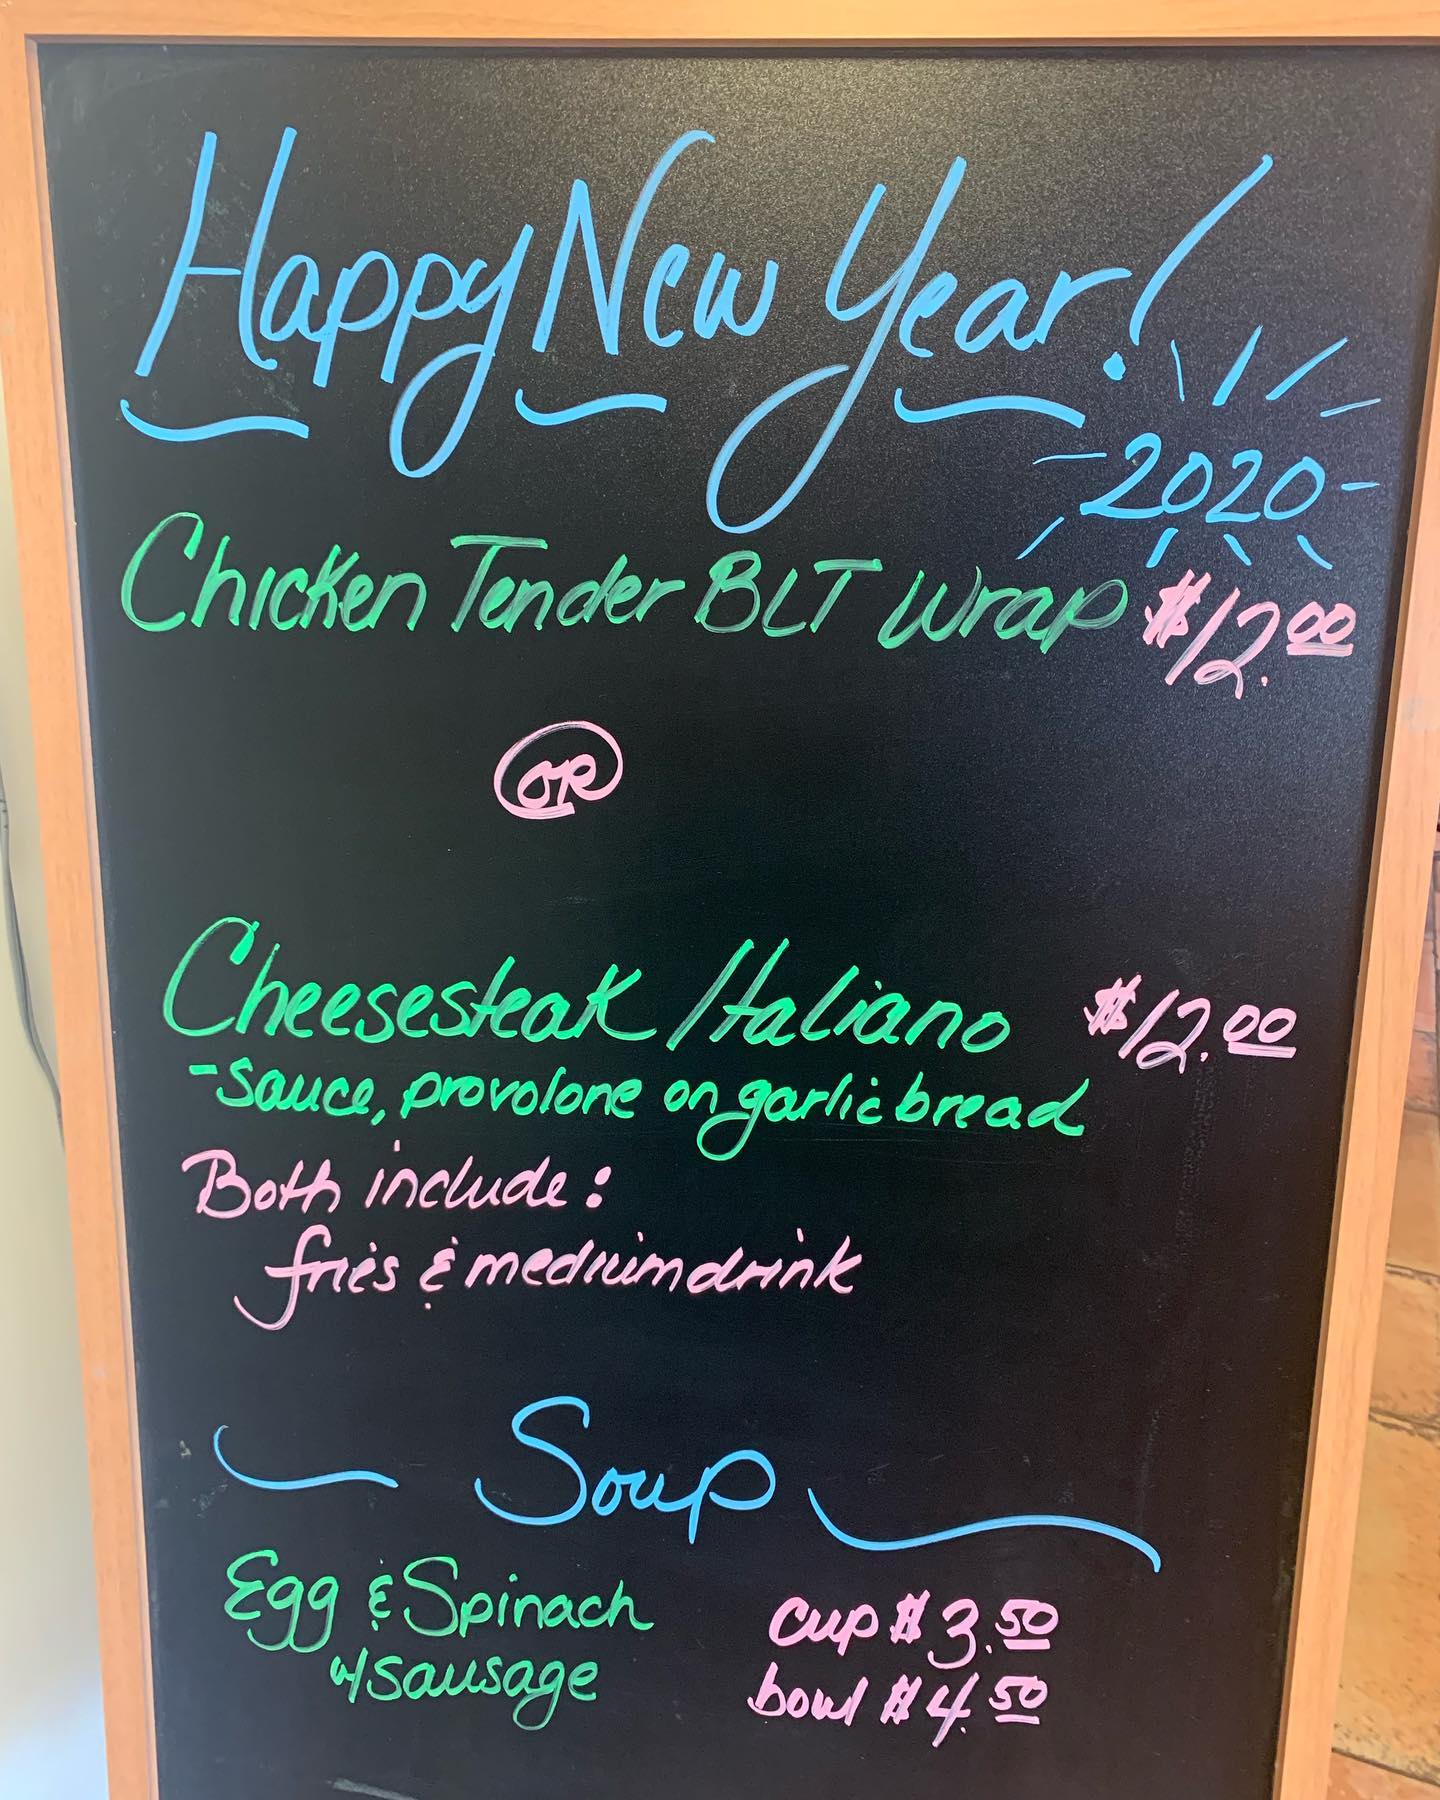 Happy New Year!
2020
Chicken Tender BLT Wrap $12.00
OR
Cheesesteak Italiano $12.00
-sauce, provolone on garlic bread
Both include:
fries & medium drink
Soup
Egg & Spinach cup $3.50
w/sausage bowl $4.50